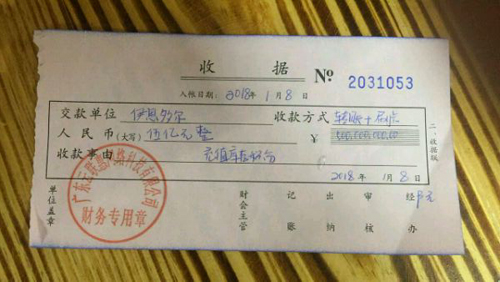 收 据 № 2031053
入帐日期: 2018年 1月 8日
交款单位 伊思多尔 收款方式 转账+刷卡
人民币(大写) 伍亿元整 ¥ 500,000,000.00
收款事由
2018年 1月 8日
单位盖章 财会主管 记账 出纳 审核 经办
财务专用章
二、收据联